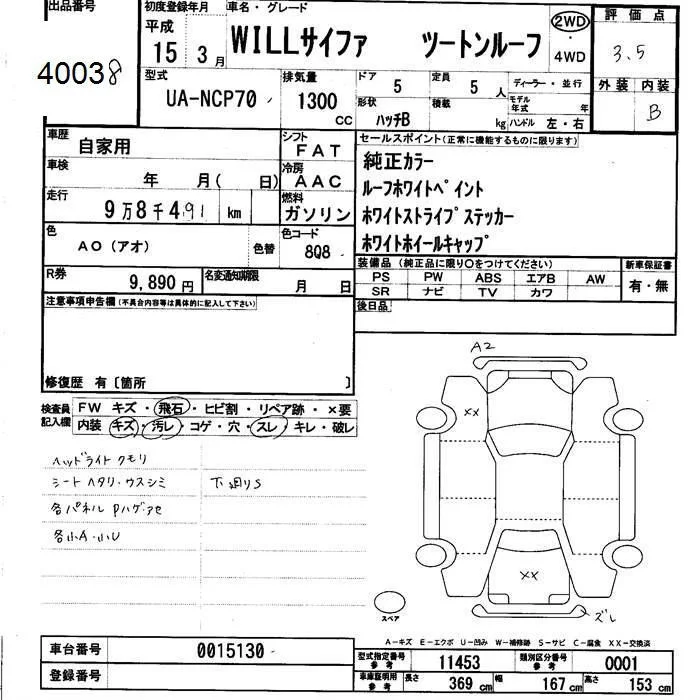 出品番号
40038
初度登録年月
平成
15 3月
車名・グレード
WILLサイファ ツートンルーフ
2WD
・
4WD
評価点
3.5
外装 内装
B
型式
UA-NCP70
排気量
1300
CC
ドア 5
定員 5人
形状
ハッチB
積載
kg
ディーラー・並行
モデル
年式 年
ハンドル 左・右
車歴
自家用
シフト
FAT
車検
年 月( 日)
冷房
AAC
走行
9万8千491 km
燃料
ガソリン
色
AO(アオ)
色替
色コード
8Q8
R券
9,890円
名変通知期限
月 日
セールスポイント(正常に機能するものに限ります)
純正カラー
ルーフホワイトペイント
ホワイトストライプステッカー
ホワイトホイールキャップ
装備品(純正品に限り○をつけてください)
新車保証書
PS PW ABS エアB AW
SR ナビ TV カワ
有・無
後日品
注意事項申告欄(不具合内容等は具体的に記入して下さい)
修復歴 有〔箇所 〕
検査員
記入欄
FW キズ・飛石・ヒビ割・リペア跡・×要
内装 キズ・汚レ・コゲ・穴・スレ・キレ・破レ
ヘッドライトクモリ
シートヘタリ・ウスシミ
下廻りS
各パネルPハゲ・アセ
各小A・小U
A2
××
××
ズレ
スペア
A-キズ E-エクボ U-凹み W-補修跡 S-サビ C-腐食 XX-交換済
車台番号
0015130
登録番号
型式指定番号
参考
11453
類別区分番号
参考
0001
車庫証明用
参考
長さ 369cm 幅 167cm 高さ 153cm